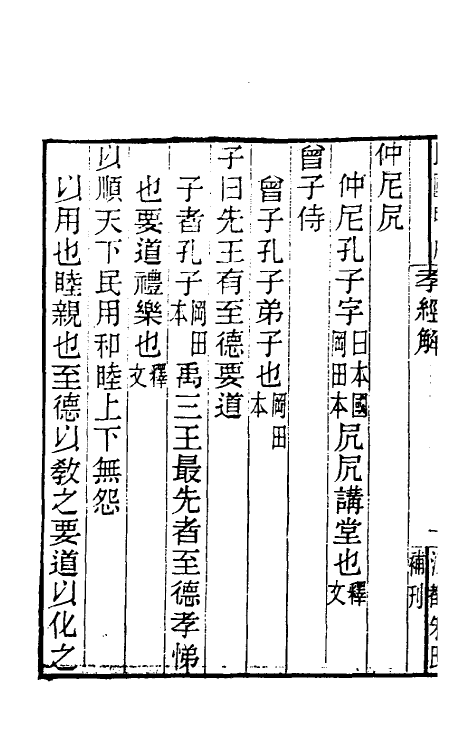 孝經解
補刊
仲尼凥
仲尼孔子字日本國岡田本凥凥講堂也釋文
曾子侍
曾子孔子弟子也岡田本
子曰先王有至德要道
子者孔子岡田本禹三王最先者至德孝悌
也要道禮樂也釋文
以順天下民用和睦上下無怨
以用也睦親也至德以敎之要道以化之